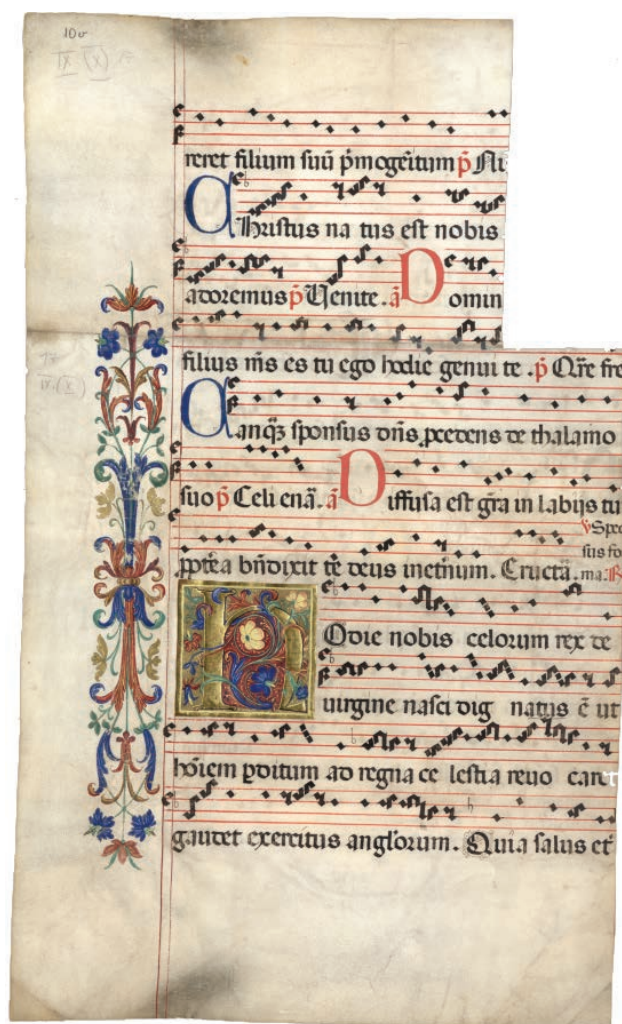 10v
IX (X)
reret filium suũ p̃mogeñitum p̃ Ni
Christus na tus est nobis
adoremus p̃ Uenite. ã Domin
filius m̃s es tu ego hodie genui te. p̃ Qr̃e fre
IX.(X)
Tanq̃ sponsus dñs p̲cedens de thalamo
suo p̃ Celi enã. ã Diffusa est gr̃a in labijs tu
ṽ Spec
sus fo
p̲pt̃ea bñdixit te deus inet̃num. Eructã. ma. R̃
Hodie nobis celorum rex de
uirgine nasci dig natus ẽ ut
hõiem p̲ditum ad regna ce lestia reuo caret
gaudet exercitus angl̃orum. Quia salus et̃